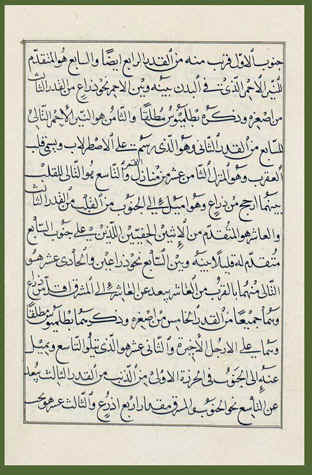 جنوب الاول قريب منه من القدر الرابع ايضا والسابع هو المتقدم
للنير الاحمر الذى فى البدن بينه وبين الاحمر نحو ذراع من القدر الثالث
من اصغره وذكره بطلميوس مطلقا والثامن هو النير الاحمر التالى
للسابع من القدر الثانى وهو الذى رسمت على الاصطرلاب ويسمى قلب
العقرب وهو المنزل الثامن عشر من منازل والتاسع هو التالى للقلب
بينهما ارجح من ذراع وهو اميل الى الجنوب من القلب من القدر الثالث
والعاشر هو المتقدم من الاثنين الخفيين اللذين على جنوب السابع
متقدم له قليلا بينه وبين التابع نحو ذراعين والحادى عشر هو
التالى منهما بالقرب من العاشر يبعد عن العاشر الى المشرق اقل من ذراع
وهما جميعا من القدر الخامس من اصغره وذكرهما بطلميوس مطلقا
وهما على الارجل الاخيرة والثانى عشر هو الذى يتلو التاسع ويميل
عنه الى الجنوب فى الخرزة الاولى من الذنب من القدر الثالث يبعد
عن التاسع نحو الجنوب والمشرق مقدار اربع اذرع والثالث عشر هو